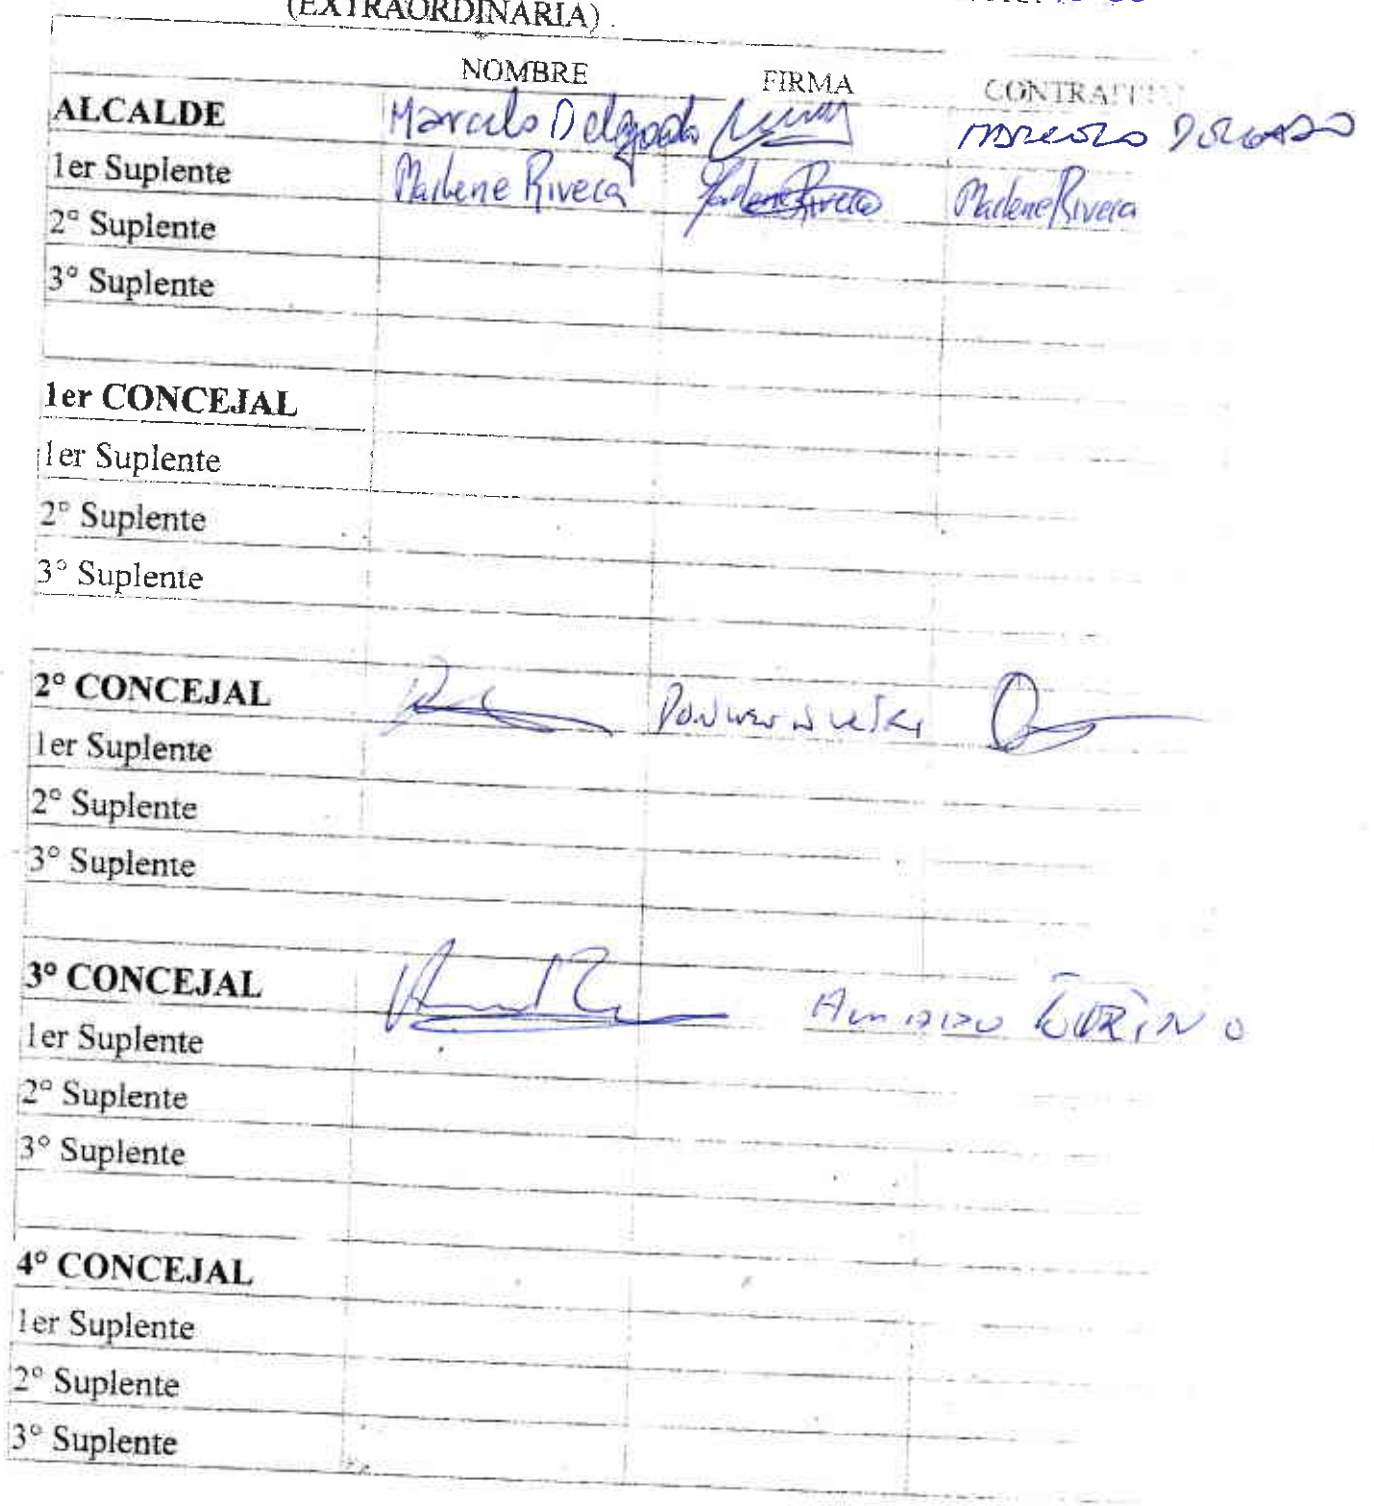 (EXTRAORDINARIA)
NOMBRE FIRMA
ALCALDE Marcelo Delgado MARCELO DELGADO
1er Suplente Marlene Rivera Marlene Rivera Marlene Rivera
2° Suplente
3° Suplente
1er CONCEJAL
1er Suplente
2° Suplente
3° Suplente
2° CONCEJAL
1er Suplente
2° Suplente
3° Suplente
3° CONCEJAL
1er Suplente
2° Suplente
3° Suplente
4° CONCEJAL
1er Suplente
2° Suplente
3° Suplente